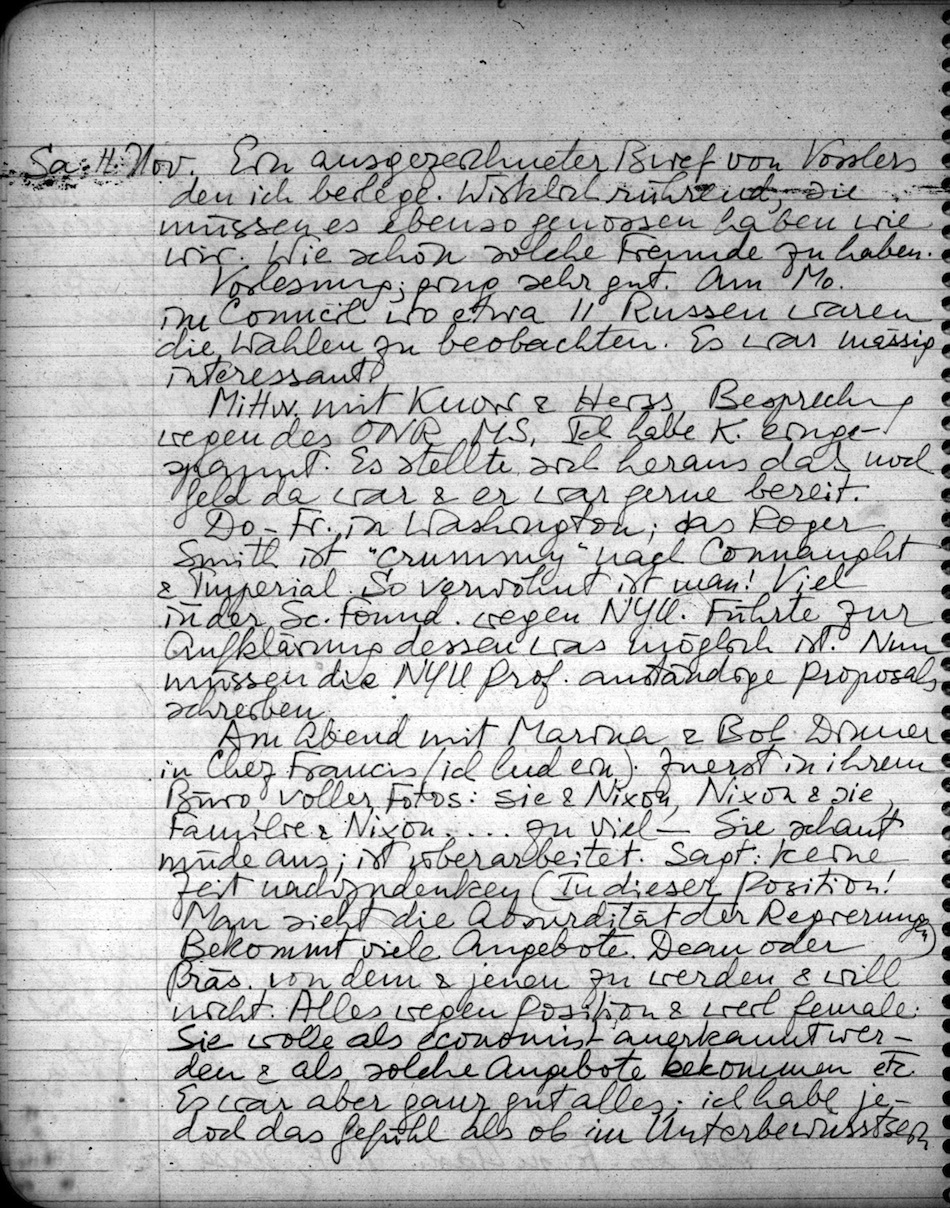 Sa. 11. Nov. Ein ausgezeichneter Brief von Vosslers
den ich beilege. Wirklich rührend, sie
müssen es ebenso genossen haben wie
wir. Wie schön solche Freunde zu haben.
Vorlesung; ging sehr gut. Am Mo.
im Council wo etwa 11 Russen waren
die Wahlen zu beobachten. Es war mässig
interessant.
Mittw. mit Knorr & Herss, Besprechg
wegen des ONR MS. Ich habe K. einge-
spannt. Es stellte sich heraus dass noch
Geld da war & er war gerne bereit.
Do-Fr. in Washington; das Roger
Smith ist "crummy" nach Connaught
& Imperial. So verwöhnt ist man! Viel
in der Sc. Found. wegen NYU. Führte zur
Aufklärung dessen was möglich ist. Nun
müssen die NYU Prof. anständige proposals
schreiben.
Am Abend mit Marina & Bob. Dinner
in Chez Francis (ich lud ein). Zuerst in ihrem
Büro voller Fotos: sie & Nixon, Nixon & sie,
Familie & Nixon .... zu viel — Sie schaut
müde aus; ist überarbeitet. Sagt: keine
Zeit nachzudenken (In dieser Position!
Man sieht die Absurdität der Regierungen)
Bekommt viele Angebote. Dean oder
Präs. von dem & jenem zu werden & will
nicht. Alles wegen Position & weil female.
Sie wolle als economist anerkannt wer-
den & als solche Angebote bekommen etc.
Es war aber ganz gut alles; ich habe je-
doch das Gefühl als ob im Unterbewusstsein